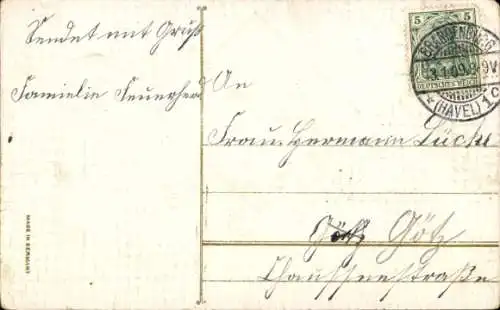 Sendet mit Gruß
Familie Feuerherd
An
Frau Hermann Lücke
Götz
Chausseestraße
5 5
DEUTSCHES REICH
BRANDENBURG
3.1.09.8-9V.
* (HAVEL) 1 c
MADE IN GERMANY